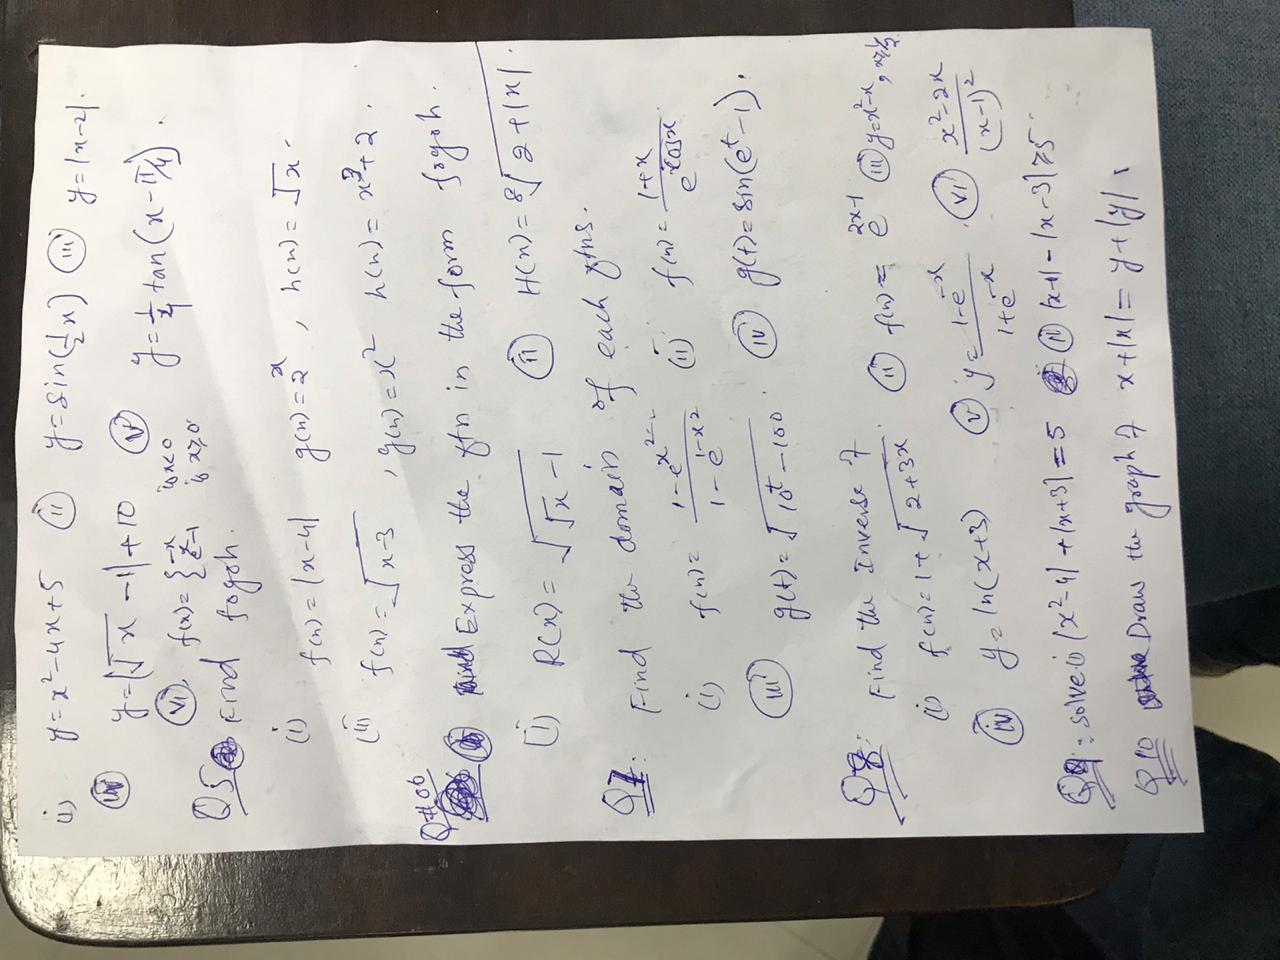 (i) y=x²-4x+5 (ii) y=sin(½x) (iii) y=|x-2|.
(iv) y=|√x -1|+10 (v) y=¼ tan(x-π/4).
(vi) f(x)={-x if x<0
e^x-1 if x≥0
Q5 Find fogoh.
(i) f(x)=|x-4| g(x)=2^x, h(x)=√x.
(ii) f(x)=√(x-3), g(x)=x² h(x)=x³+2.
Q#06
Express the ftn in the form fogoh.
(i) R(x)=√(√x-1) (ii) H(x)=⁸√(2+|x|).
Q7: Find the domain of each ftns.
(i) f(x)=(1-e^x²)/(1-e^(1-x²)) (ii) f(x)=(1+x)/e^(cosx)
(iii) g(t)=√(10^t-100) (iv) g(t)=sin(e^t-1).
Q8: Find the Inverse of
(i) f(x)=1+√(2+3x) (ii) f(x)=e^(2x-1) (iii) y=x²-x, x≥½
(iv) y=ln(x+3) (v) y=(1-e^-x)/(1+e^-x) (vi) (x²-2x)/(x-1)²
Q9: solve (i) |x²-4|+|x+3|=5 (ii) |x-1|-|x-3|≥5
Q10 Draw the graph of x+|x|=y+|y|